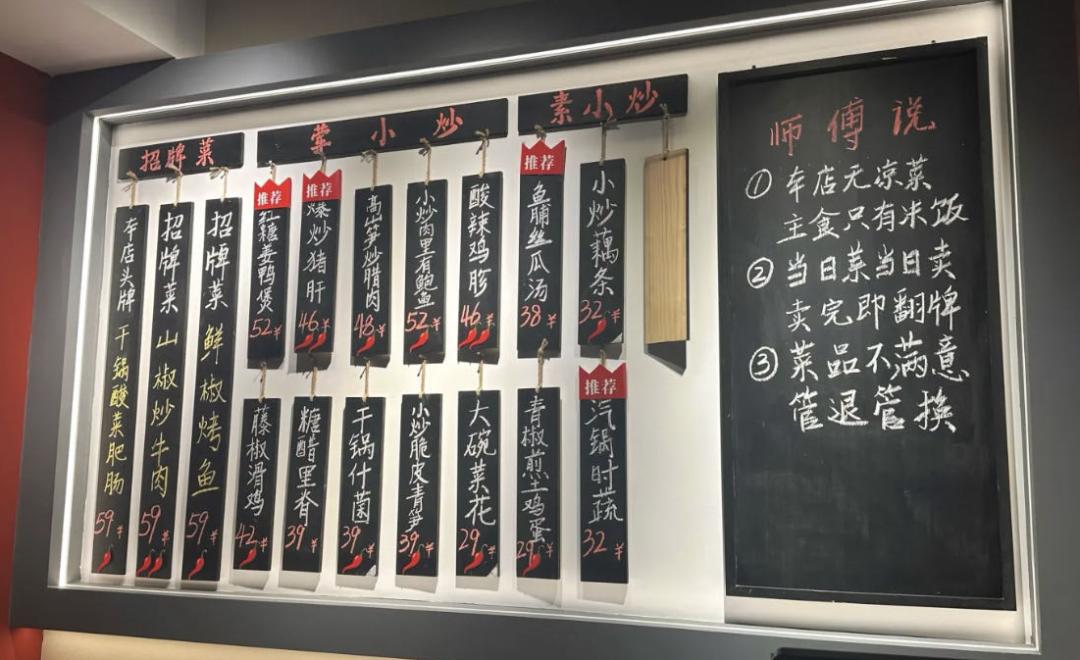 招牌菜
本店头牌 干锅酸菜肥肠 59元
招牌菜 山椒炒牛肉 59元
招牌菜 鲜椒烤鱼 59元
荤小炒
推荐 红糖姜鸭煲 52元
推荐 爆炒猪肝 46元
高山笋炒腊肉 48元
小炒肉里有鲍鱼 52元
酸辣鸡胗 46元
藤椒滑鸡 42元
糖醋里脊 39元
干锅什菌 39元
小炒脆皮青笋 39元
大碗菜花 29元
素小炒
推荐 鱼脯丝瓜汤 38元
小炒藕条 32元
青椒煎土鸡蛋 29元
推荐 汽锅时蔬 32元
师傅说
① 本店无凉菜
主食只有米饭
② 当日菜当日卖
卖完即翻牌
③ 菜品不满意
管退管换